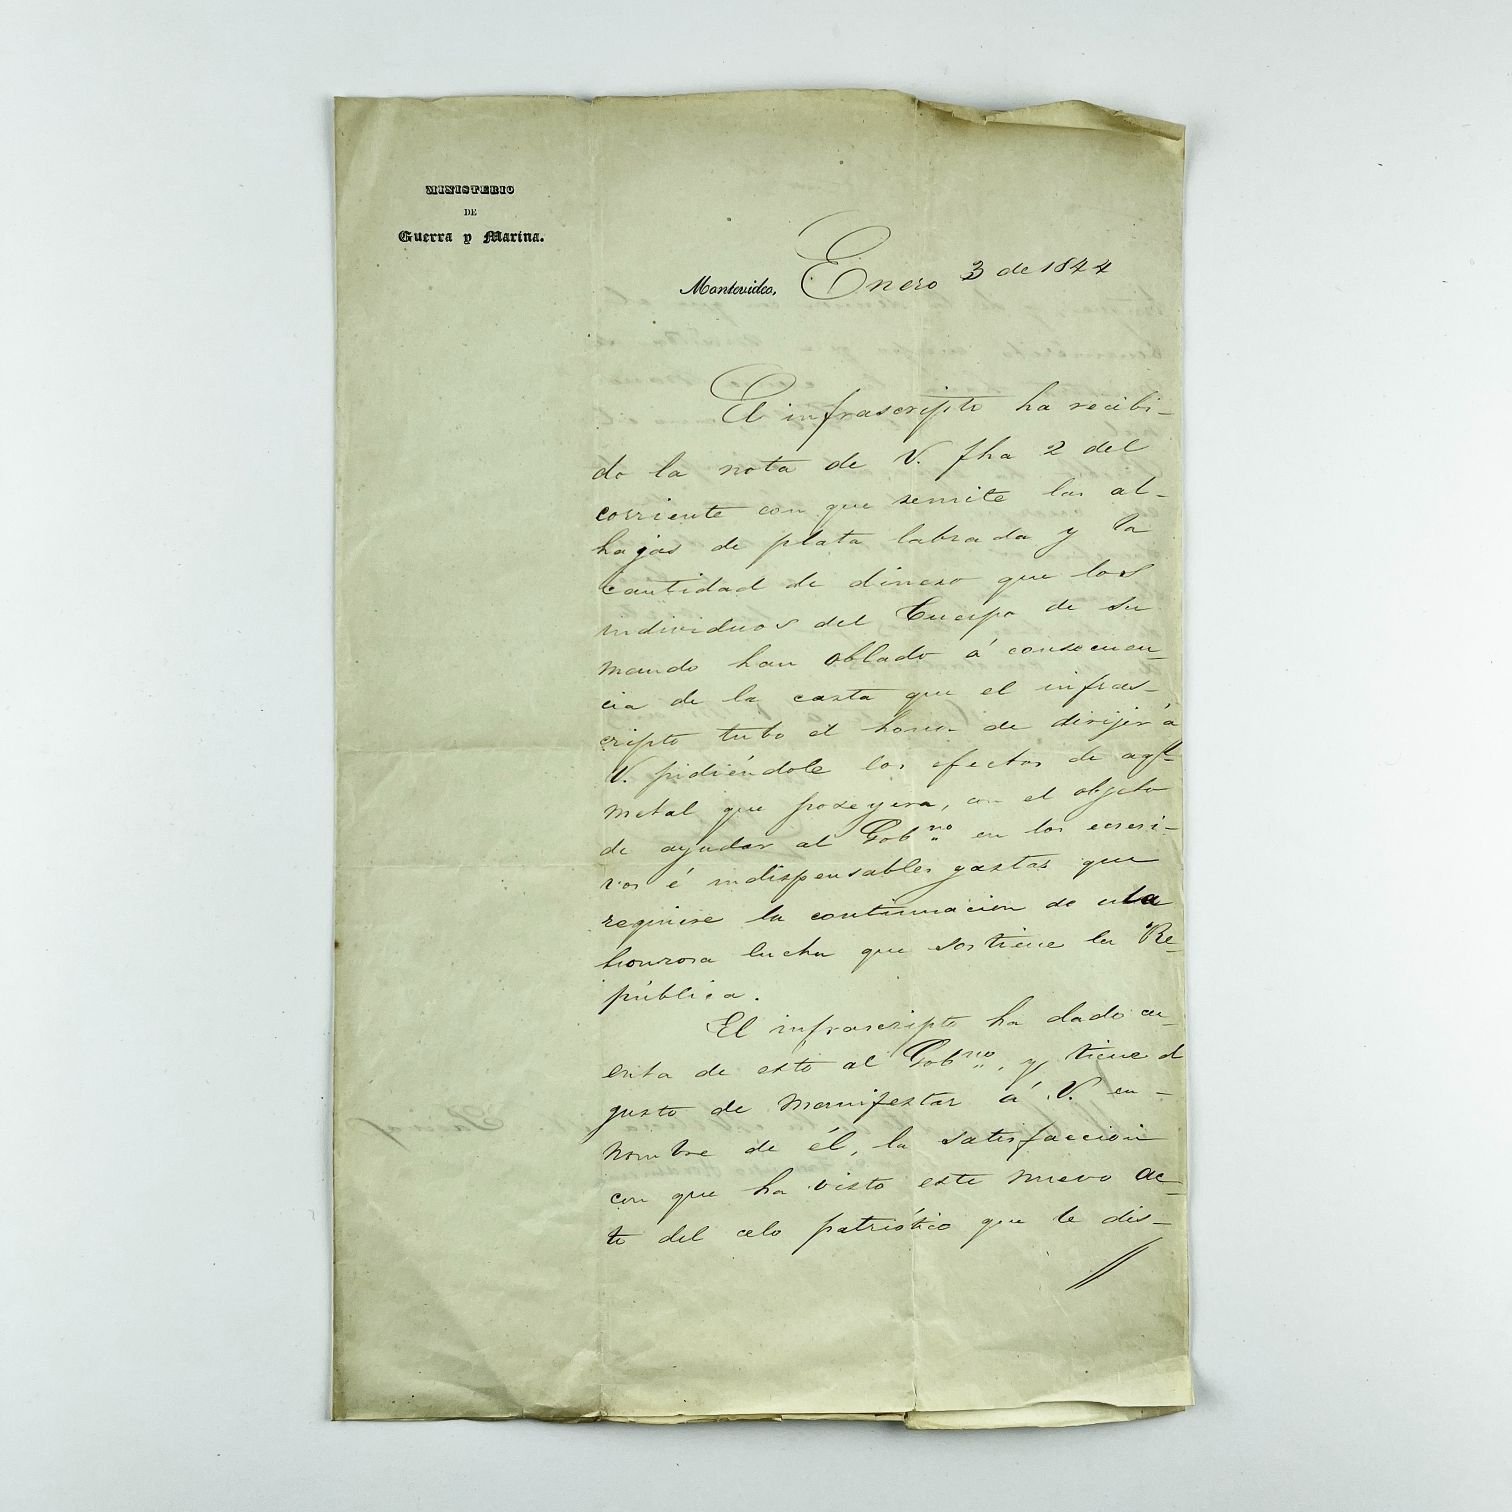 MINISTERIO
DE
Guerra y Marina.
Montevideo, Enero 3 de 1844
El infrascripto ha recibi-
do la nota de V. fha 2 del
corriente con que remite las al-
hajas de plata labrada y la
cantidad de dinero que los
individuos del Cuerpo de su
mando han oblado á consecuen-
cia de la carta que el infras-
cripto tubo el honor de dirijir á
V. pidiéndole los efectos de aql.
metal que poseyera, con el objeto
de ayudar al Gobno en los
é indispensables gastos que
requiere la continuacion de esta
honrosa lucha que sostiene la Re-
pública.
El infrascripto ha dado cu-
enta de esto al Gobno, y tiene el
gusto de manifestar á V. en
nombre de él, la satisfaccion
con que ha visto este nuevo ac-
to del celo patriótico que le dis-